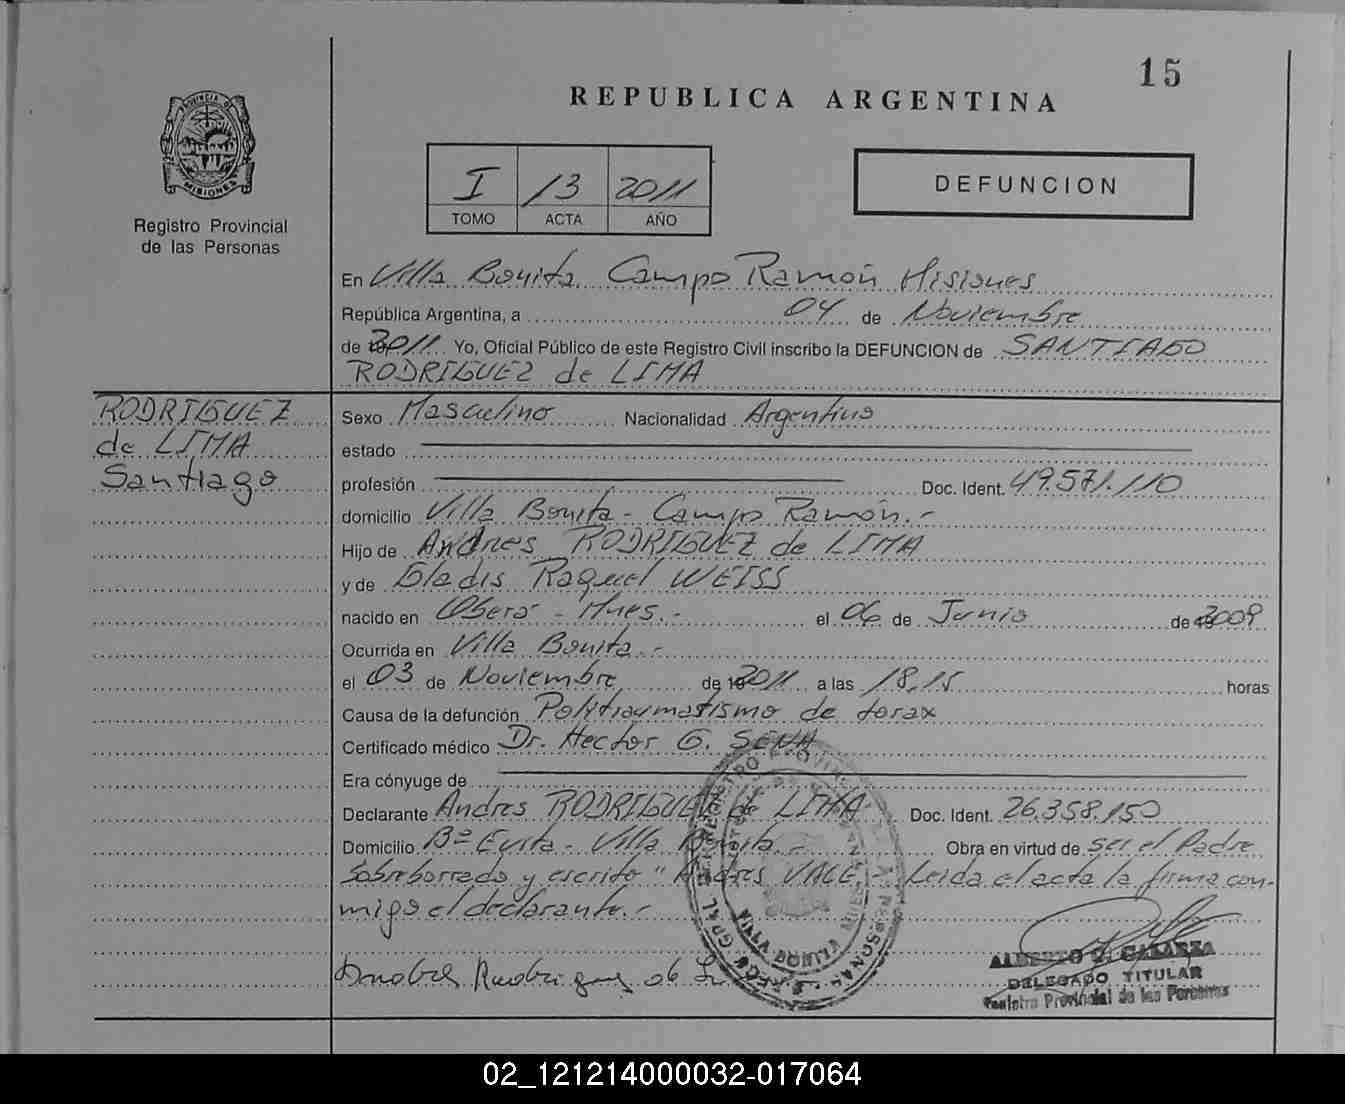 15
REPUBLICA ARGENTINA
PROVINCIA DE
MISIONES
Registro Provincial
de las Personas
I 13 2011
TOMO ACTA AÑO
DEFUNCION
En Villa Bonita Campo Ramón Misiones
República Argentina, a 04 de Noviembre
de 2011 Yo, Oficial Público de este Registro Civil inscribo la DEFUNCION de SANTIAGO
RODRIGUEZ de LIMA
RODRIGUEZ
de LIMA
Santiago
Sexo Masculino Nacionalidad Argentino
estado
profesión Doc. Ident. 49.571.110
domicilio Villa Bonita - Campo Ramón.-
Hijo de Andres RODRIGUEZ de LIMA
y de Gladis Raquel WEISS
nacido en Oberá - Mnes.- el 06 de Junio de 2009
Ocurrida en Villa Bonita.-
el 03 de Noviembre de 2011 a las 18,15 horas
Causa de la defunción Politraumatismo de torax
Certificado médico Dr. Hector G. SENA
Era cónyuge de
Declarante Andres RODRIGUEZ de LIMA Doc. Ident. 26.358.150
Domicilio Bº Evita - Villa Bonita.- Obra en virtud de ser el Padre
Sobreborrado y escrito "Andres VALE.- Leida el acta la firma con-
migo el declarante.-
DELEGADO TITULAR
Registro Provincial de las Personas
02_121214000032-017064